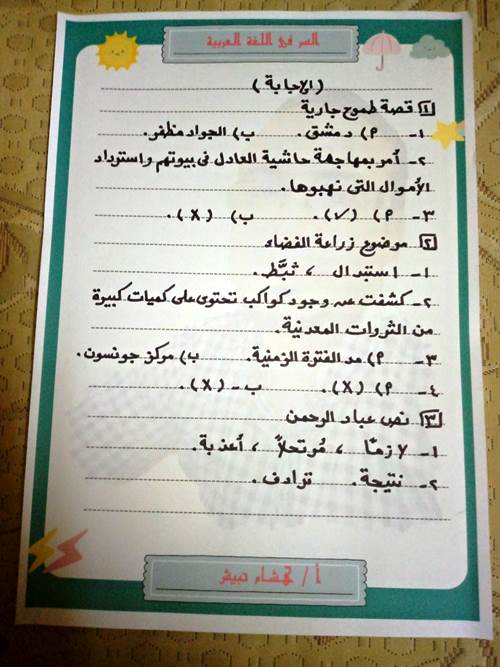 السر في اللغة العربية
(الإجابة)
١ قصة طموح جارية
١- أ) دمشق. ب) الجواد مظفر.
٢- أمر بمهاجمة حاشية العادل فى بيوتهم واسترداد
الأموال التى نهبوها.
٣- أ) (✓). ب) (X).
٢ موضوع زراعة الفضاء
١- استبدال ، ثبَّط.
٢- كشفت عن وجود كواكب تحتوى على كميات كبيرة
من الثروات المعدنية.
٣- أ) مد الفترة الزمنية. ب) مركز جونسون.
٤- أ) (X). ب- (X).
٣ نص عباد الرحمن
١- لازمًا ، مُرتحلاً ، أعذبة.
٢- نتيجة. ترادف.
أ / هشام حبيش